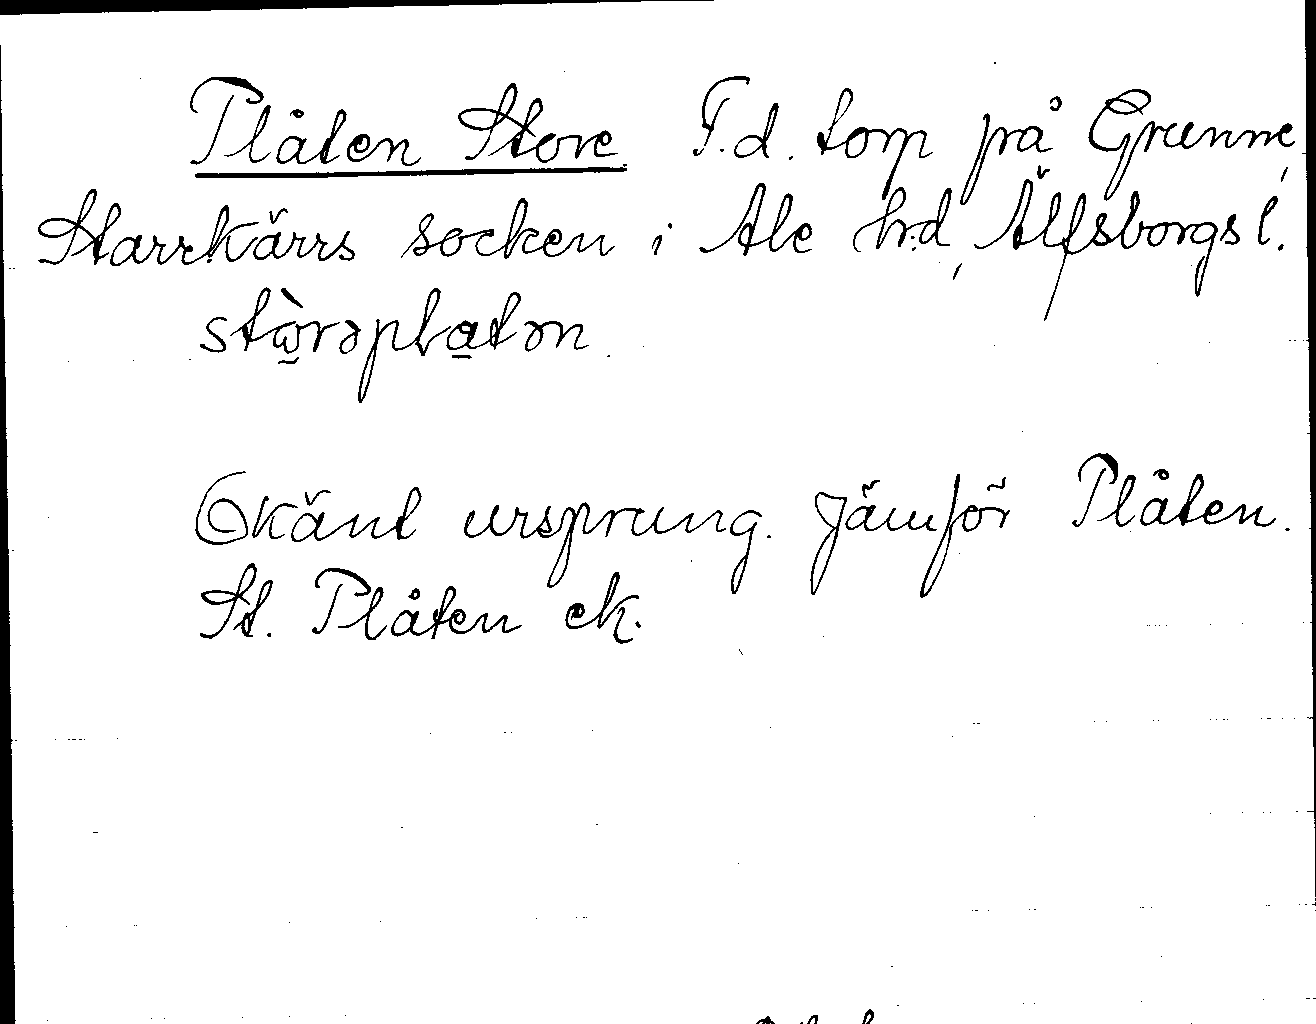 Plåten Store. F.d. torp på Grunne,
Starrkärrs socken i Ale h:d, Älfsborgs l.
Okänt ursprung. Jämför Plåten.
St. Plåten ek.